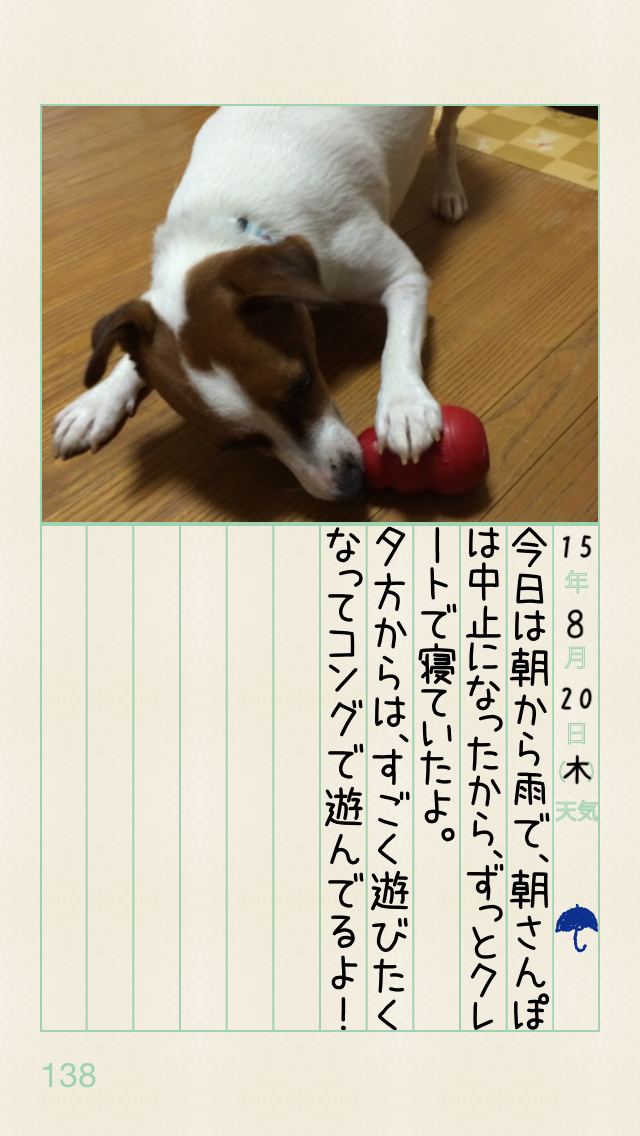 15年8月20日(木)天気
今日は朝から雨で、朝さんぽ
は中止になったから、ずっとクレ
ートで寝ていたよ。
夕方からは、すごく遊びたく
なってコングで遊んでるよ！
138